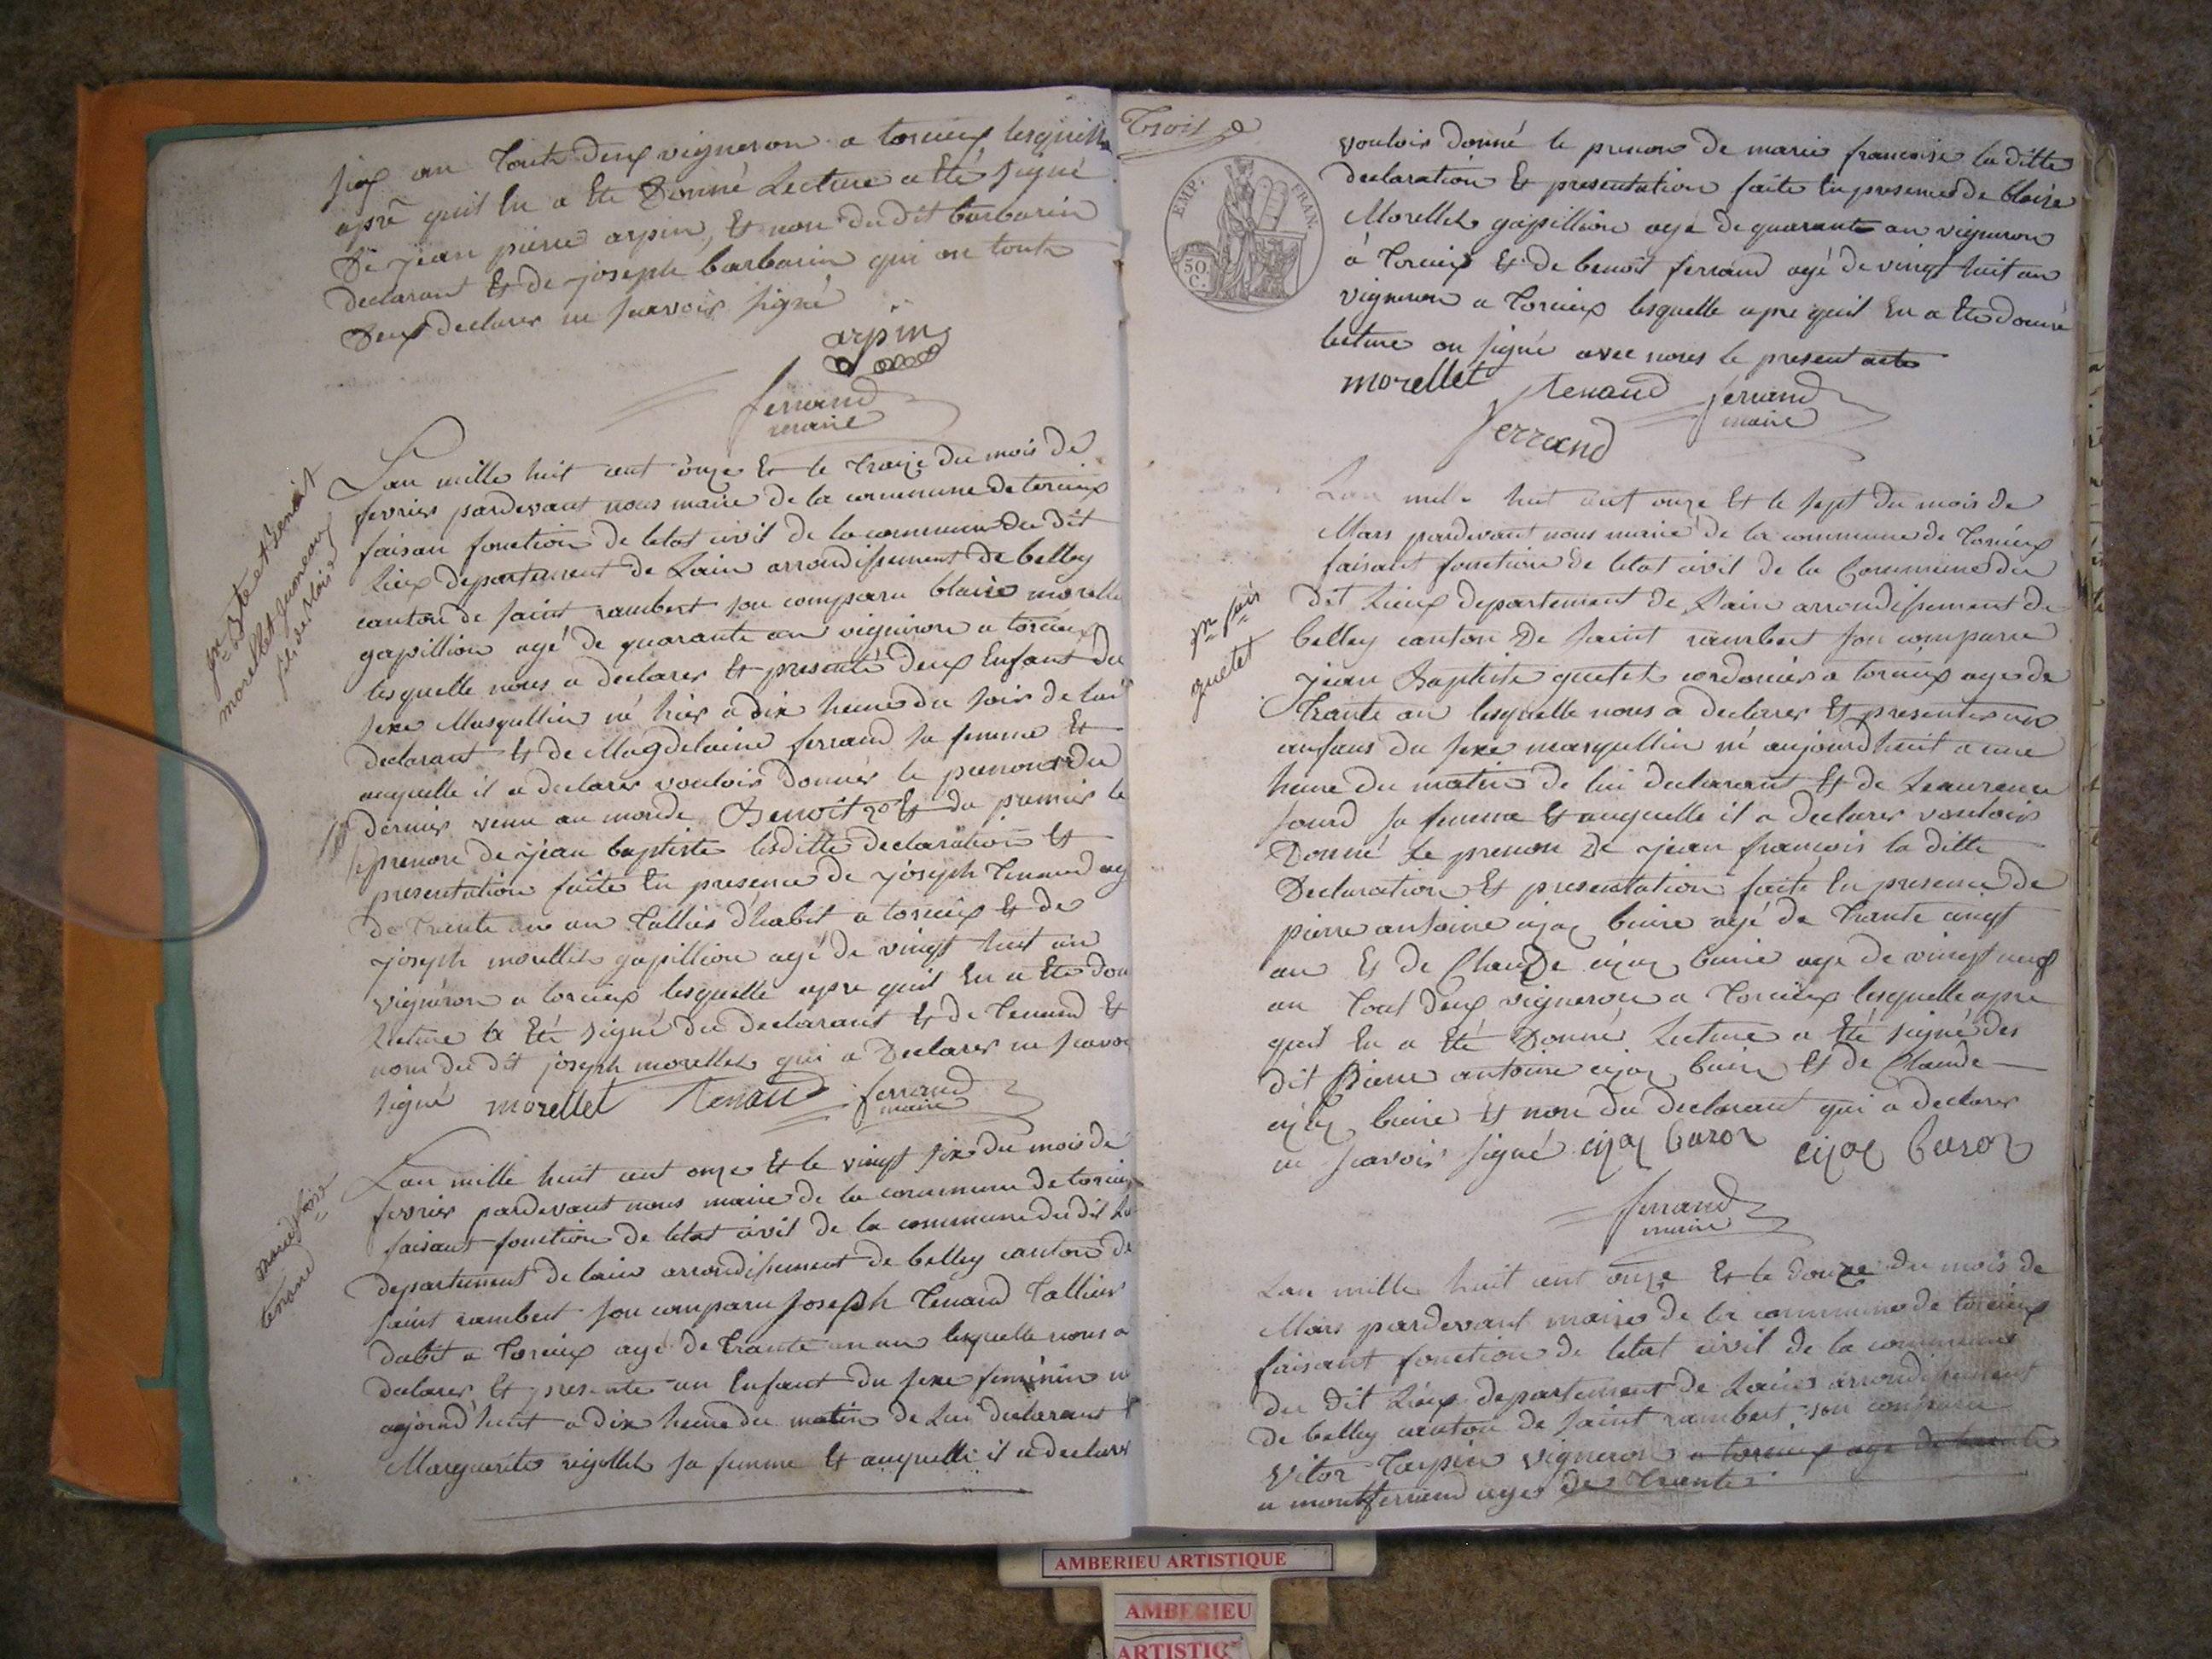 six an toute deux vigneron a torcieux lesquelle
apre quil en a Ete Donné Lecture a Eté signé
De jean pierre arpin, Et non du dit barbarin
declarant Et de joseph barbarin qui on toute
Deux declarer ne scavoir signé
arpin
ferrand
maire
Lan mille huit cent onze Et le traize du mois de
fevrier pardevant nous maire de la commune de torcieux
faisan fonction de letat civil de la commune du dit
Lieux departement de Lain arrondissement de belley
canton de saint rambert son comparu blaise morellet
gapillion agé de quarante an vigniron a torcieux
lesquelle nous a declarer Et presenté deux Enfant du
sexe Masqullin né hier a dix heure du soir de lui
declarant Et de Magdelaine ferrand sa femme Et
auquelle il a declarer vouloir donner le prenom du
dernier venu au monde Benoit Et du premier le
prenom de jean baptiste lesditte declaration Et
presentation faite En presence de joseph Tenand agé
De trante un an Tallier d'habit a torcieux Et de
joseph morellet gapillion agé de vingt huit an
vigneron a torcieux lesquelle apre quil En a Ete don
Lecture a Eté signé du declarant Et de Tenand Et
non du dit joseph morellet qui a Declarer ne scavoir
signé morellet Tenand ferrand
maire
jn Bte et Benoit
morellet jumeaux
fils de blaise
Lan mille huit cent onze Et le vingt six du mois de
fevrier pardevant nous maire de la commune de torcieux
faisant fonction de letat civil de la commune du dit Lieu
departement de lain arrondissement de belley canton de
saint rambert son comparu Joseph Tenand Tallier
dabit a Torcieux agé de trante un an lesquelle nous a
declarer Et presente un Enfant du sexe feminin né
aujourd'huit a dix heure du matin de Lui declarant Et
Marguerite rigollet sa femme Et auquelle il a declarer
marie fsoise
tenand
Trois
EMP. FRAN.
50
C.
vouloir donné le prenom de marie francoise la ditte
declaration Et presentation faite En presence de blaise
Morellet gapillion agé de quarante an vigneron
à Torcieux Et de benoit ferrand agé de vingt huit an
vigneron a Torcieux lesquelle apre quil En a Ete donné
lecture on signé avec nous le present acte
morellet Tenand ferrand
maire
ferrand
Lan mil huit cent onze Et le sept du mois de
Mars pardevant nous maire de la commune de Torcieux
faisant fonction de letat civil de la Commune du
dit Lieux departement de Lain arrondissement de
belley canton De saint rambert son comparu
jean Baptiste quetet cordonier a torcieux age de
Trante an lesquelle nous a declarer Et presenter un
anfans du sexe masqullin né aujourdhuit a une
heure du matin de lui declarant Et de Leaurence
jourd sa femme Et auquelle il a declarer vouloir
Donné Le prenom De jean francois la ditte
Declaration Et presentation faite En presence de
pierre antoine cujaz buire agé de trante cinqt
an Et de Claude cujaz buire age de vingt neuf
an Tout deux vigneron a Torcieux lesquelle apre
quil En a Eté Donné Lecture a Eté signé des
dit pierre antoine cujaz buire Et de Claude
cujaz buire Et non du declarant qui a declarer
ne scavoir signé cujaz buror cujaz buror
ferrand
maire
jn fois
quetet
Lan mille huit cent onze Et le Douze du mois de
Mars pardevant maire de la commune de torcieux
faisant fonction de letat civil de la commune
du dit Lieux departement de Lain arrondissement
de belley canton de saint rambert son comparu
Vitor Tarpin vigneron a torcieux age de trante
a montferrand age de Trante
AMBERIEU ARTISTIQUE
AMBERIEU
ARTISTIQ